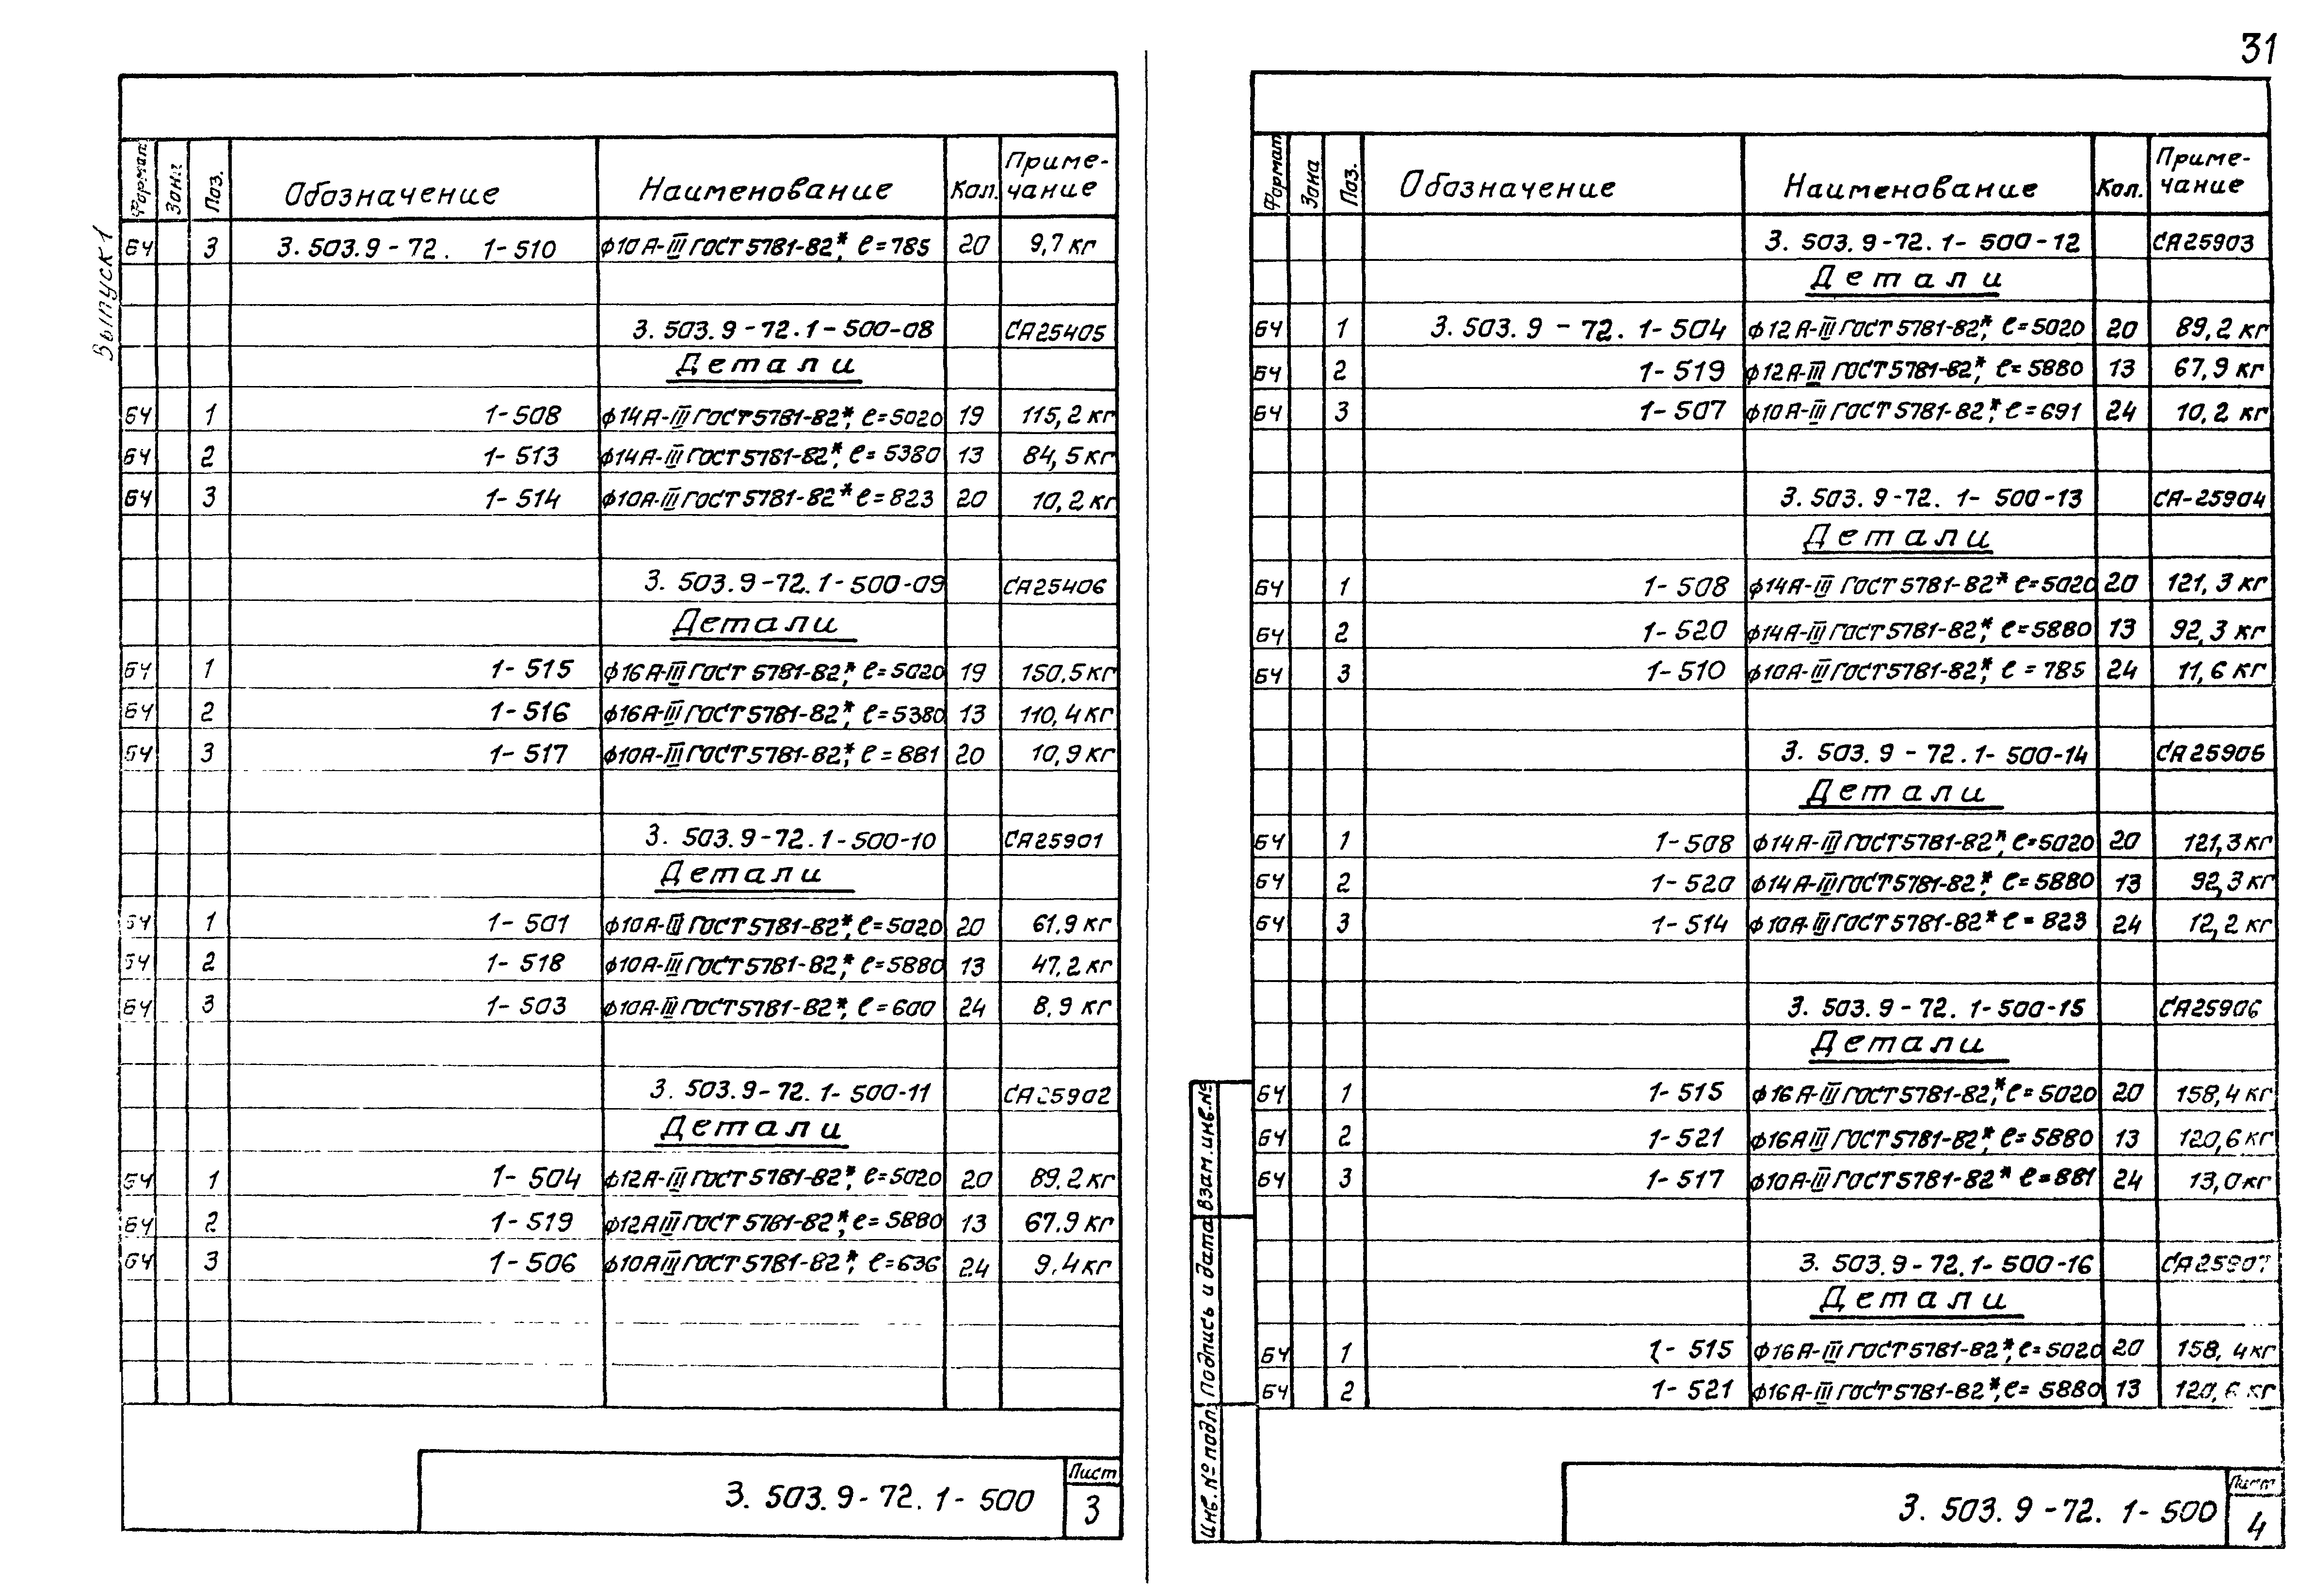 31
Выпуск 1
Формат Зона Поз. Обозначение Наименование Кол. Приме-чание
БЧ 3 3.503.9-72. 1-510 ф10А-III ГОСТ 5781-82*, ℓ=785 20 9,7 кг
3.503.9-72.1-500-08 СА25405
Детали
БЧ 1 1-508 ф14А-III ГОСТ 5781-82*, ℓ=5020 19 115,2 кг
БЧ 2 1-513 ф14А-III ГОСТ 5781-82*, ℓ=5380 13 84,5 кг
БЧ 3 1-514 ф10А-III ГОСТ 5781-82* ℓ=823 20 10,2 кг
3.503.9-72.1-500-09 СА25406
Детали
БЧ 1 1-515 ф16А-III ГОСТ 5781-82*, ℓ=5020 19 150,5 кг
БЧ 2 1-516 ф16А-III ГОСТ 5781-82*, ℓ=5380 13 110,4 кг
БЧ 3 1-517 ф10А-III ГОСТ 5781-82*, ℓ=881 20 10,9 кг
3.503.9-72.1-500-10 СА25901
Детали
БЧ 1 1-501 ф10А-III ГОСТ 5781-82*, ℓ=5020 20 61,9 кг
БЧ 2 1-518 ф10А-III ГОСТ 5781-82*, ℓ=5880 13 47,2 кг
БЧ 3 1-503 ф10А-III ГОСТ 5781-82*, ℓ=600 24 8,9 кг
3.503.9-72.1-500-11 СА25902
Детали
БЧ 1 1-504 ф12А-III ГОСТ 5781-82*, ℓ=5020 20 89,2 кг
БЧ 2 1-519 ф12АIII ГОСТ 5781-82*, ℓ=5880 13 67,9 кг
БЧ 3 1-506 ф10АIII ГОСТ 5781-82*, ℓ=636 24 9,4 кг
3.503.9-72.1-500 Лист 3
Формат Зона Поз. Обозначение Наименование Кол. Приме-чание
3.503.9-72.1-500-12 СА25903
Детали
БЧ 1 3.503.9-72.1-504 ф12А-III ГОСТ 5781-82*, ℓ=5020 20 89,2 кг
БЧ 2 1-519 ф12А-III ГОСТ 5781-82*, ℓ=5880 13 67,9 кг
БЧ 3 1-507 ф10А-III ГОСТ 5781-82*, ℓ=691 24 10,2 кг
3.503.9-72.1-500-13 СА-25904
Детали
БЧ 1 1-508 ф14А-III ГОСТ 5781-82* ℓ=5020 20 121,3 кг
БЧ 2 1-520 ф14А-III ГОСТ 5781-82*, ℓ=5880 13 92,3 кг
БЧ 3 1-510 ф10А-III ГОСТ 5781-82*, ℓ=785 24 11,6 кг
3.503.9-72.1-500-14 СА25905
Детали
БЧ 1 1-508 ф14А-III ГОСТ 5781-82*, ℓ=5020 20 121,3 кг
БЧ 2 1-520 ф14А-III ГОСТ 5781-82*, ℓ=5880 13 92,3 кг
БЧ 3 1-514 ф10А-III ГОСТ 5781-82* ℓ=823 24 12,2 кг
3.503.9-72.1-500-15 СА25906
Детали
БЧ 1 1-515 ф16А-III ГОСТ 5781-82*, ℓ=5020 20 158,4 кг
БЧ 2 1-521 ф16АIII ГОСТ 5781-82*, ℓ=5880 13 120,6 кг
БЧ 3 1-517 ф10А-III ГОСТ 5781-82* ℓ=881 24 13,0 кг
3.503.9-72.1-500-16 СА25907
Детали
БЧ 1 1-515 ф16А-III ГОСТ 5781-82*, ℓ=5020 20 158,4 кг
БЧ 2 1-521 ф16А-III ГОСТ 5781-82*, ℓ=5880 13 120,6 кг
Инв. № подл. Подпись и дата Взам. инв. №
3.503.9-72.1-500 Лист 4